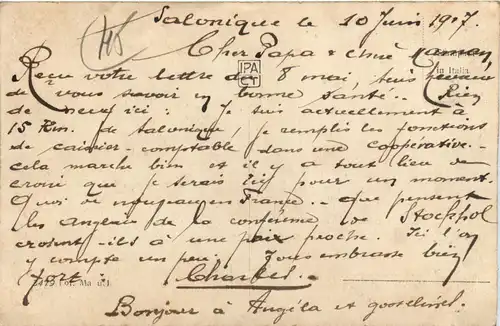 Salonique le 10 Juin 1917.
Cher Papa & chère Maman,
Reçu votre lettre du 8 mai, suis heureux
de vous savoir en bonne santé. Rien
de neuf ici: Je suis actuellement à
15 Km. de Salonique, je remplis les fonctions
de caissier-comptable dans une coopérative.
cela marche bien et il y a tout lieu de
croire que je serais ici pour un moment.
Quoi de nouveau en France. que pensent
les anglais de la conférence de Stockhol
croient-ils à une paix proche. Ici l'on
y compte un peu. Vous embrasse bien
fort: Charles.
Bonjour à Angéla et
H5
IPA
CT
in Italia